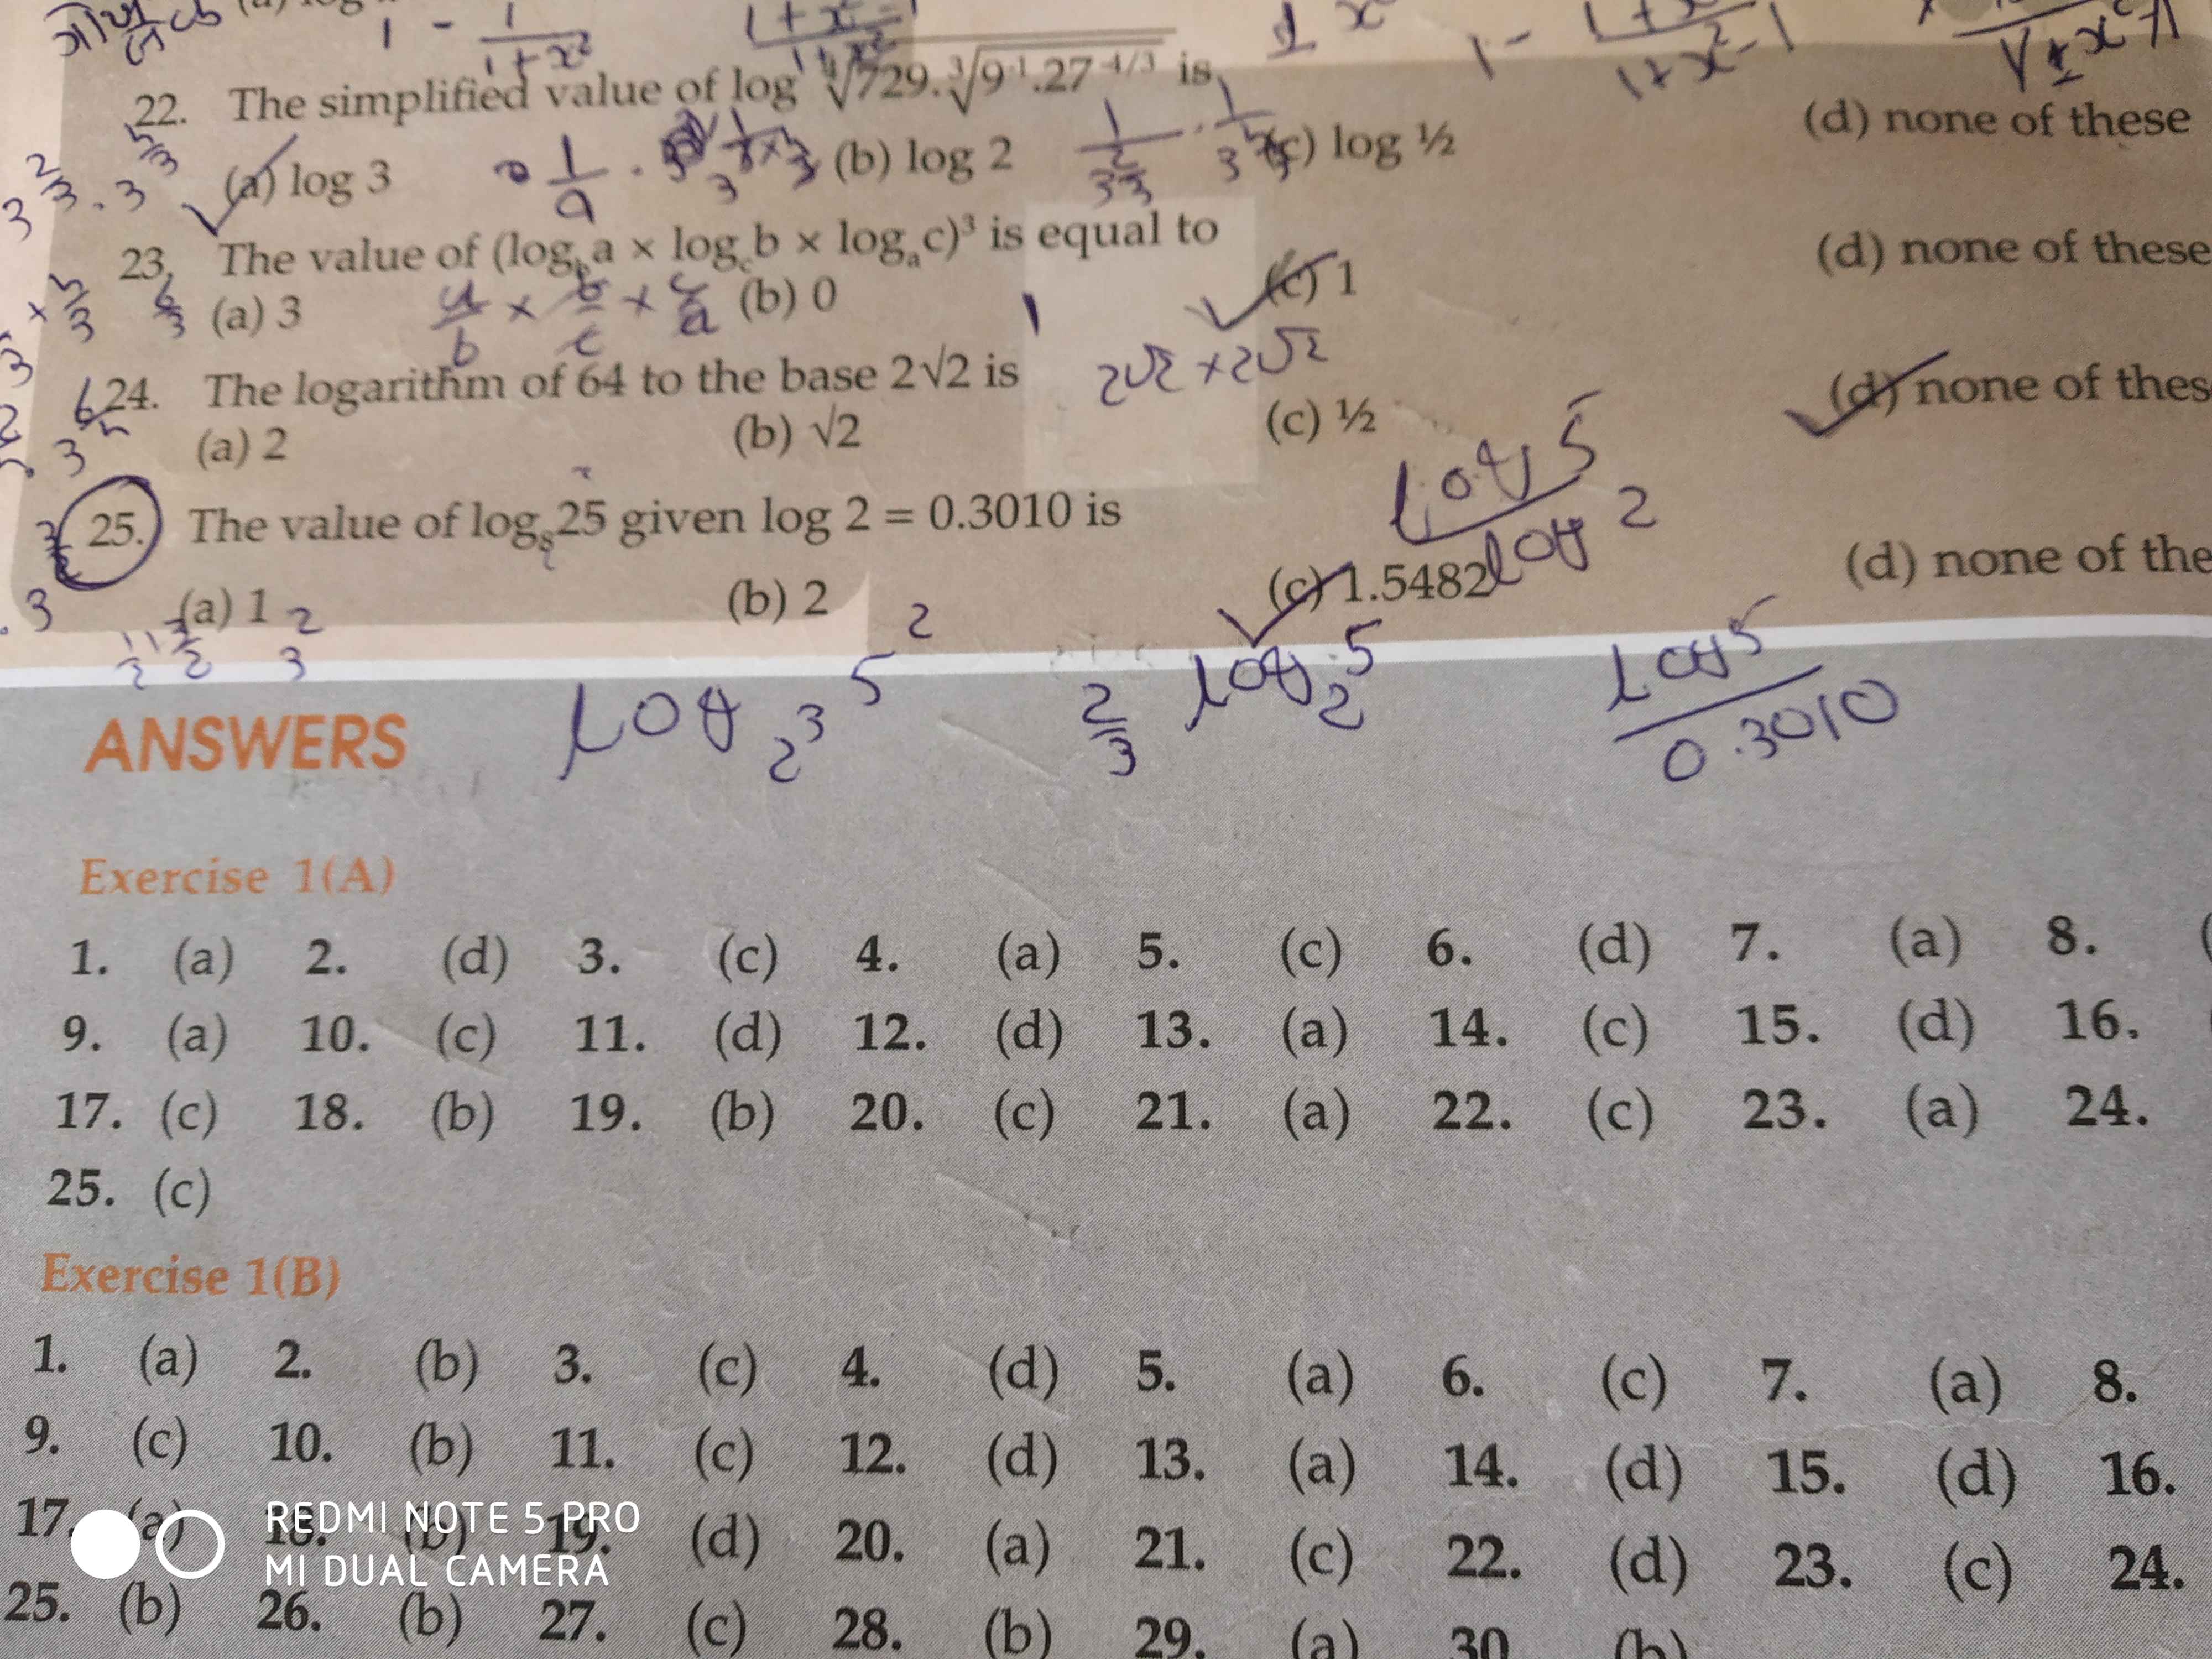 22. The simplified value of log ∜729.∛9⁻¹.27⁻⁴/³ is
(a) log 3 (b) log 2 (c) log ½ (d) none of these
23. The value of (log_b a × log_c b × log_a c)³ is equal to
(a) 3 (b) 0 (c) 1 (d) none of these
a/b × b/c × c/a
24. The logarithm of 64 to the base 2√2 is
2√2 × 2√2
(a) 2 (b) √2 (c) ½ (d) none of thes
25. The value of log₈25 given log 2 = 0.3010 is
log 5 / log 2
(a) 1 (b) 2 (c) 1.5482 (d) none of the
log 2³ 5² 2/3 log₂ 5 log 5 / 0.3010
ANSWERS
Exercise 1(A)
1. (a) 2. (d) 3. (c) 4. (a) 5. (c) 6. (d) 7. (a) 8.
9. (a) 10. (c) 11. (d) 12. (d) 13. (a) 14. (c) 15. (d) 16.
17. (c) 18. (b) 19. (b) 20. (c) 21. (a) 22. (c) 23. (a) 24.
25. (c)
Exercise 1(B)
1. (a) 2. (b) 3. (c) 4. (d) 5. (a) 6. (c) 7. (a) 8.
9. (c) 10. (b) 11. (c) 12. (d) 13. (a) 14. (d) 15. (d) 16.
17. (a) 18. (b) 19. (d) 20. (a) 21. (c) 22. (d) 23. (c) 24.
25. (b) 26. (b) 27. (c) 28. (b) 29. (a) 30 (b)
REDMI NOTE 5 PRO
MI DUAL CAMERA